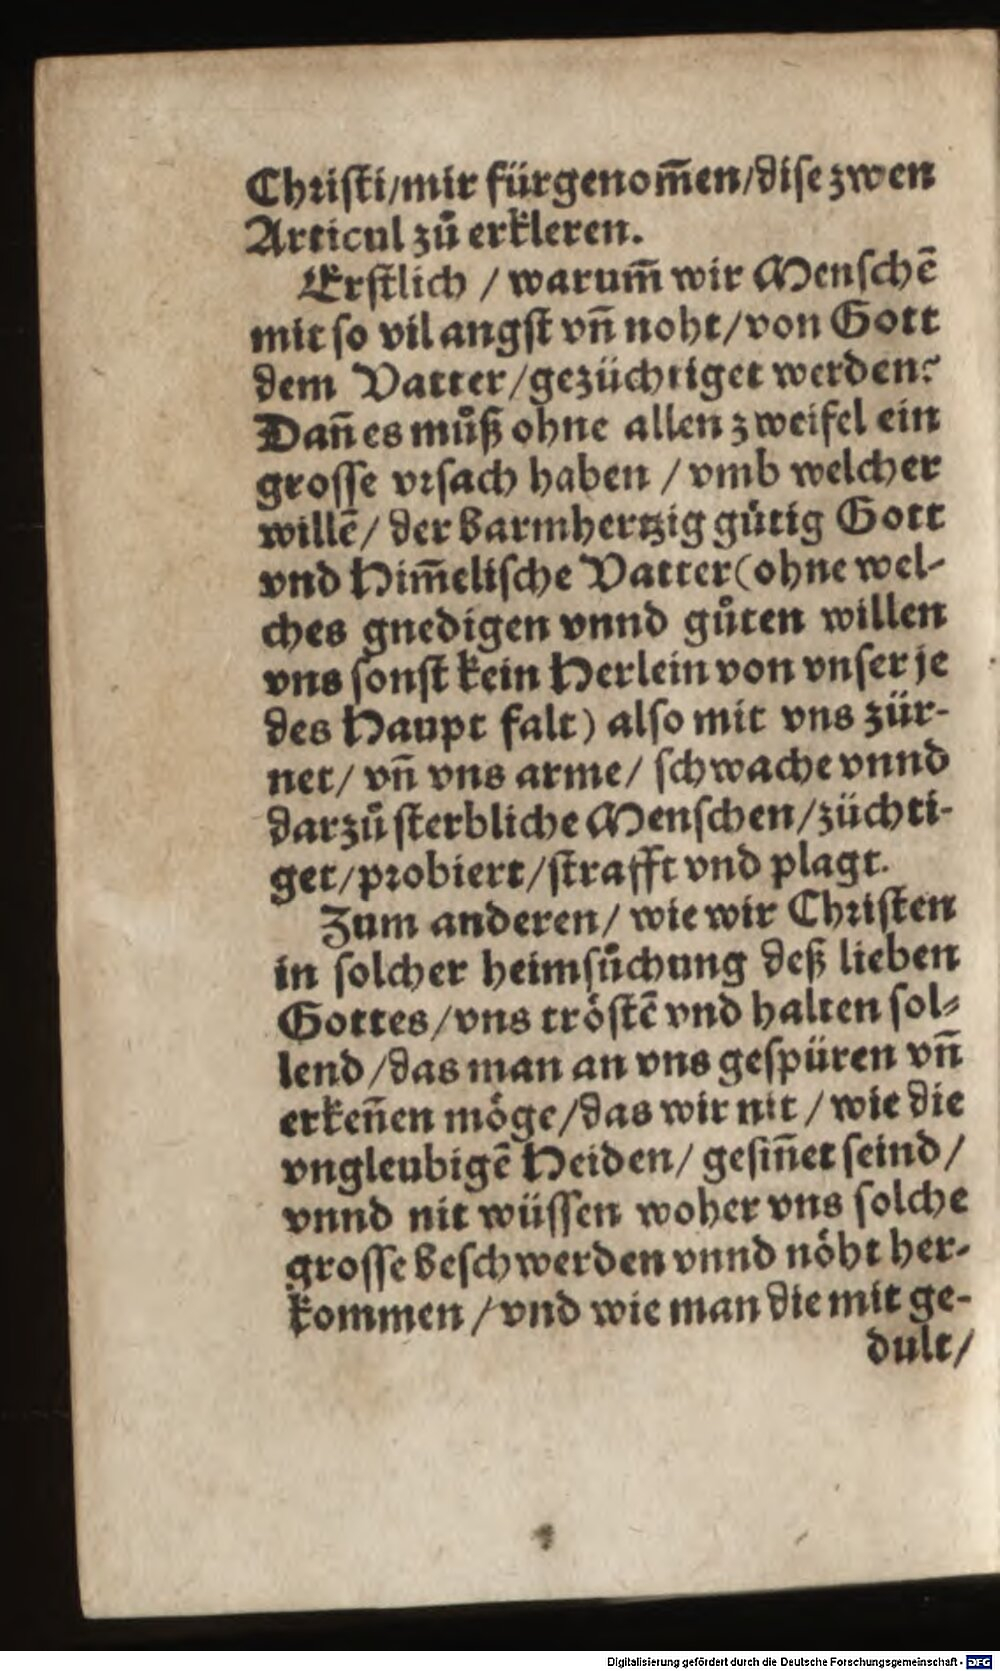 Christi/mir fürgenom̄en/dise zwen
Articul zů erkleren.
Erstlich / warum̄ wir Menschē
mit so vil angst vn̄ noht/von Gott
dem Vatter/gezüchtiget werden?
Dan̄ es můß ohne allen zweifel ein
grosse vrsach haben / vmb welcher
willē/ der barmhertzig gütig Gott
vnd Him̄elische Vatter(ohne wel-
ches gnedigen vnnd gůten willen
vns sonst kein Herlein von vnser je
des Haupt falt) also mit vns zür-
net/ vn̄ vns arme/ schwache vnnd
darzů sterbliche Menschen/züchti-
get/probiert/strafft vnd plagt.
Zum anderen/ wie wir Christen
in solcher heimsůchung deß lieben
Gottes/vns tröstē vnd halten sol-
lend/das man an vns gespüren vn̄
erken̄en möge/das wir nit / wie die
vngleubigē Heiden/ gesin̄et seind/
vnnd nit wüssen woher vns solche
grosse beschwerden vnnd nöht her-
kommen / vnd wie man die mit ge-
dult/
Digitalisierung gefördert durch die Deutsche Forschungsgemeinschaft - DFG